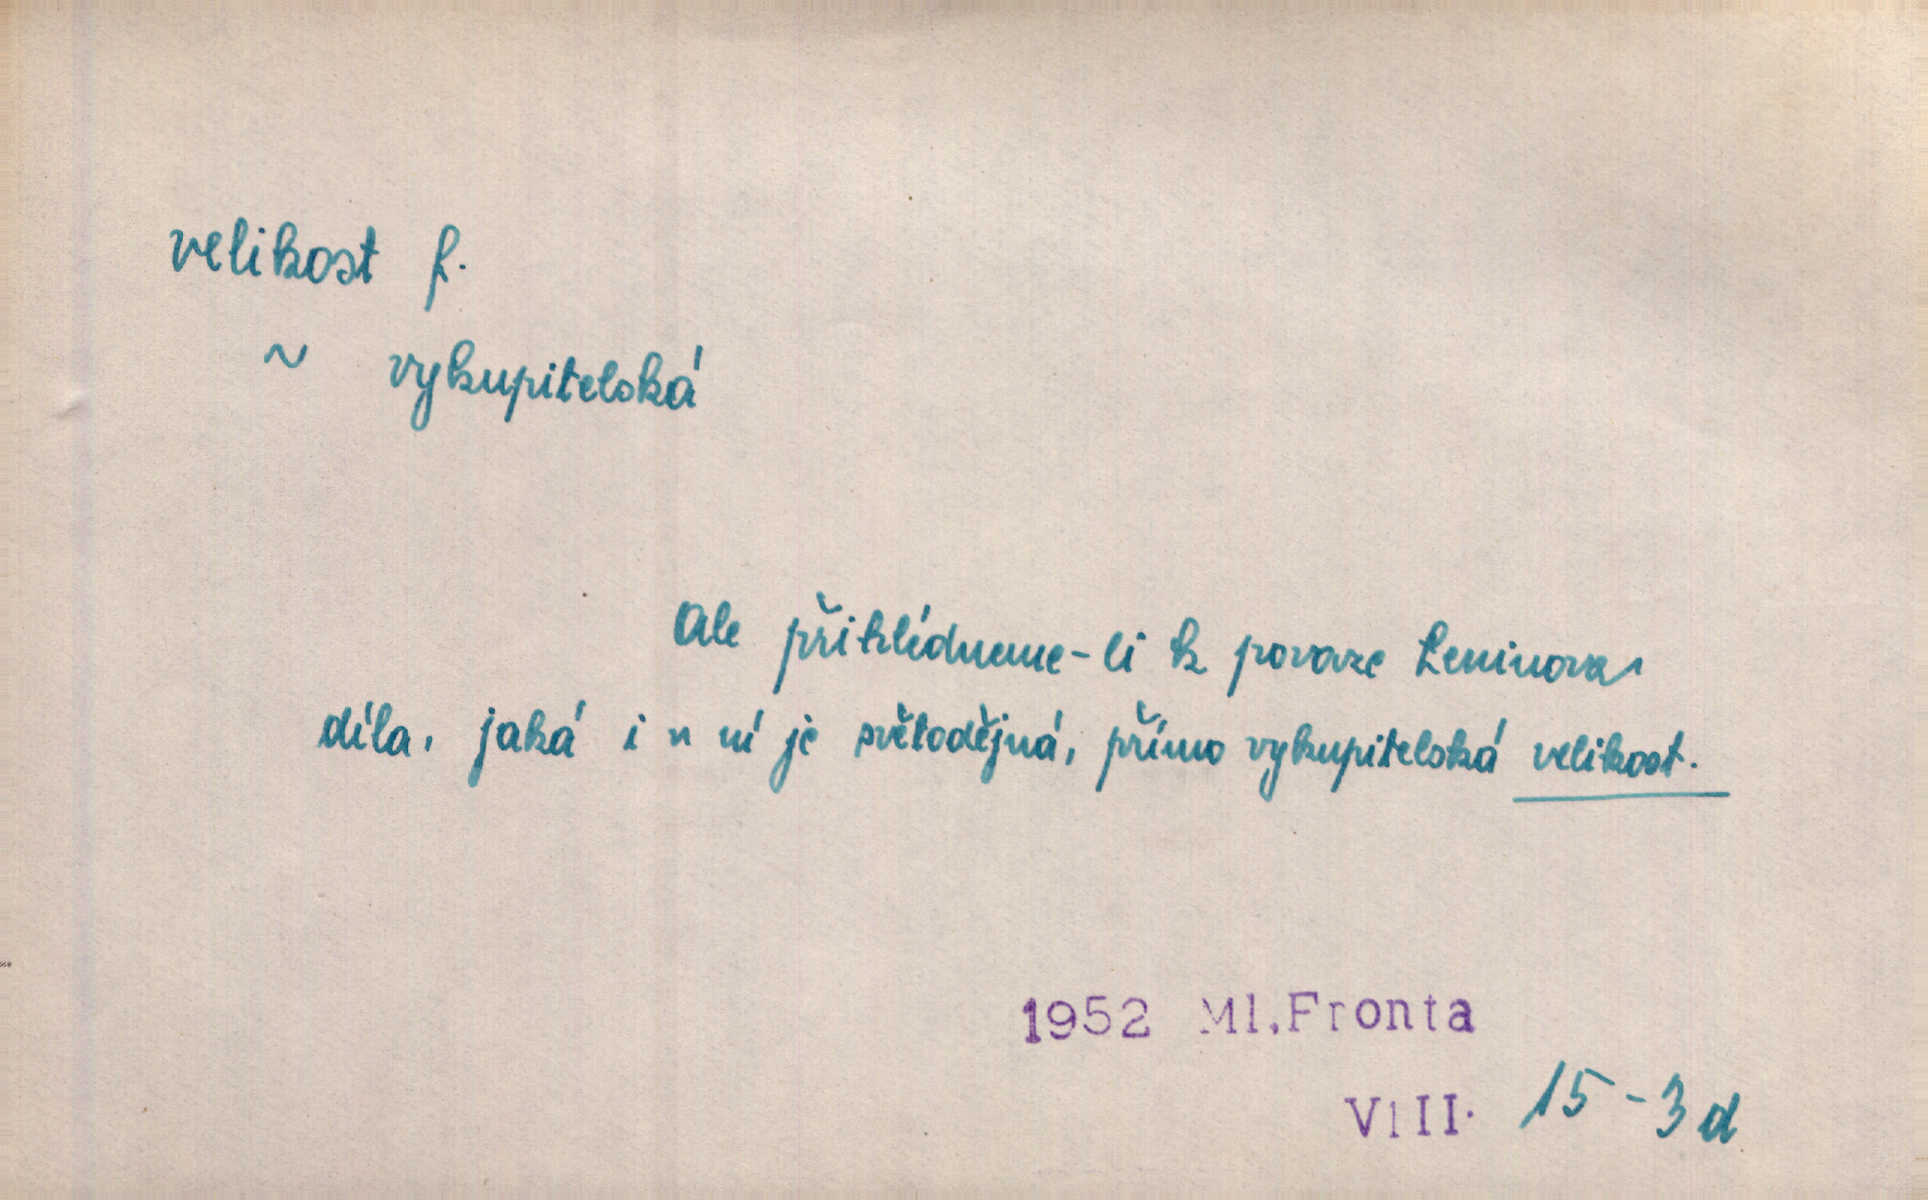 velikost f.
~ vykupitelská
Ale přihlédneme-li k povaze Leninova
díla, jaká i v ní je světodějná, přímo vykupitelská velikost.
1952 Ml.Fronta
VIII. 15-3d